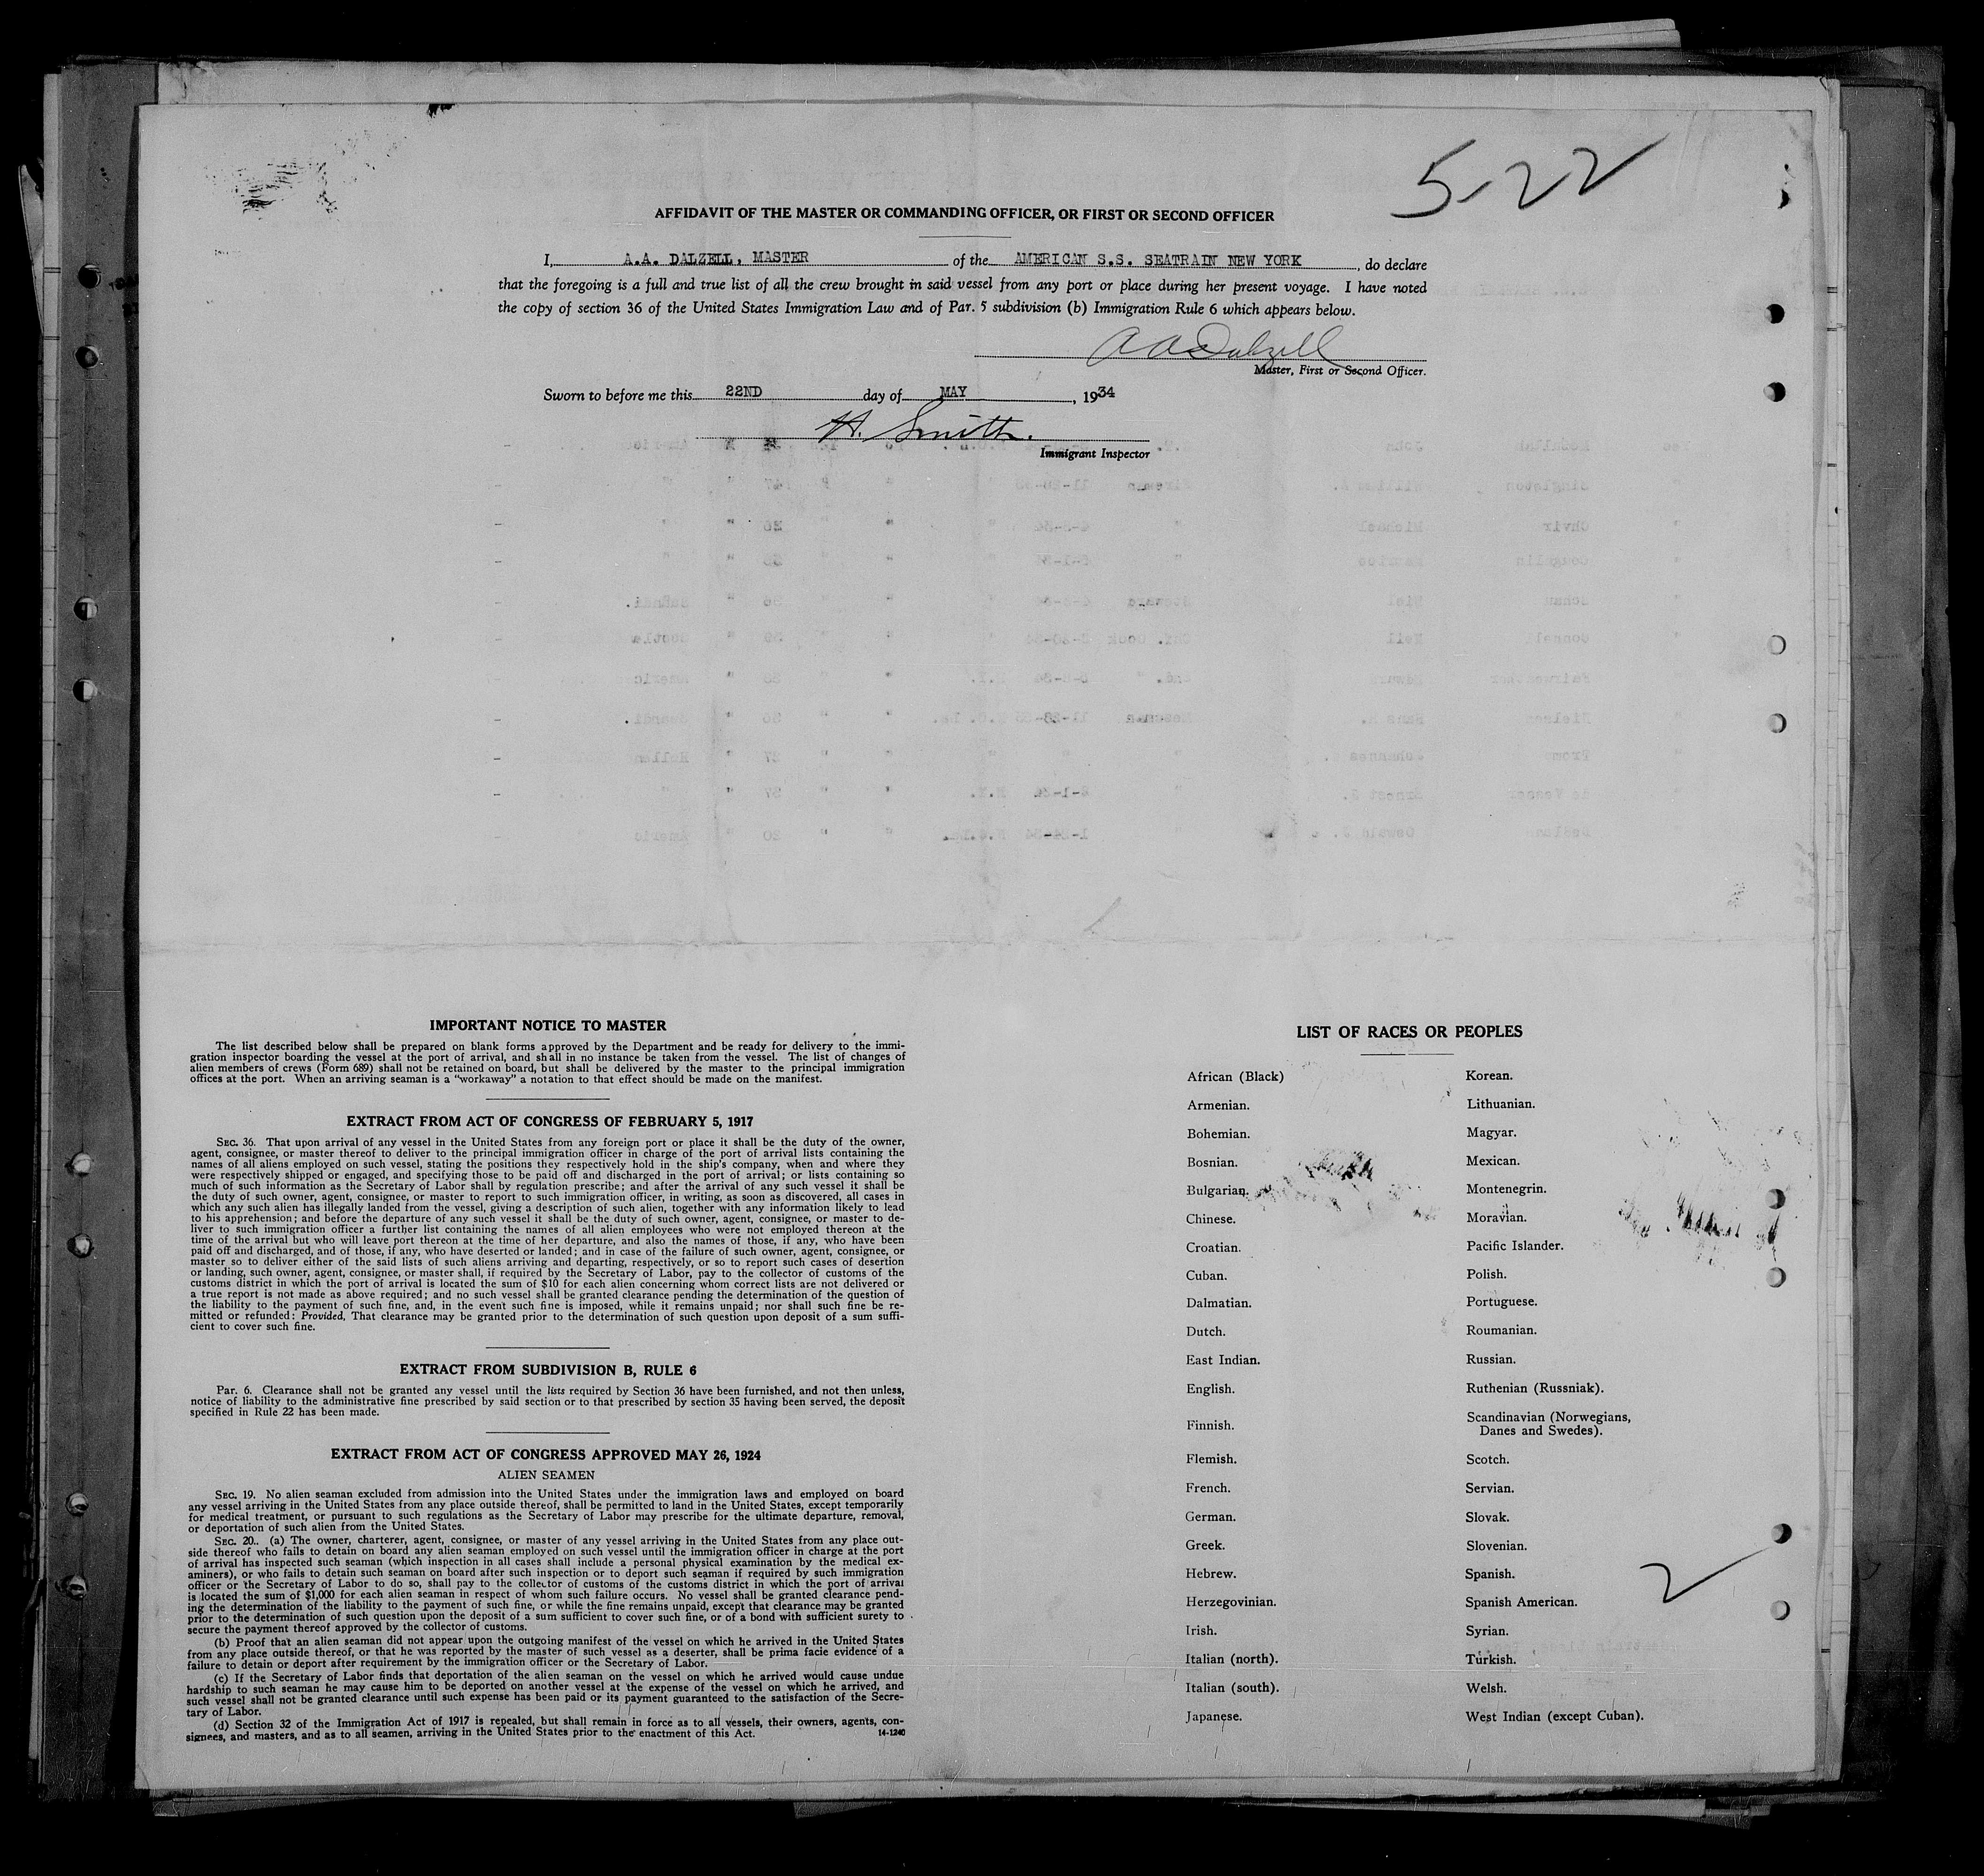 5-22
AFFIDAVIT OF THE MASTER OR COMMANDING OFFICER, OR FIRST OR SECOND OFFICER
I, A.A. DALZELL, MASTER of the AMERICAN S.S. SEATRAIN NEW YORK, do declare
that the foregoing is a full and true list of all the crew brought in said vessel from any port or place during her present voyage. I have noted
the copy of section 36 of the United States Immigration Law and of Par. 5 subdivision (b) Immigration Rule 6 which appears below.
A A Dalzell
Master, First or Second Officer.
Sworn to before me this 22ND day of MAY, 1934
H. Smith.
Immigrant Inspector
IMPORTANT NOTICE TO MASTER
The list described below shall be prepared on blank forms approved by the Department and be ready for delivery to the immi-
gration inspector boarding the vessel at the port of arrival, and shall in no instance be taken from the vessel. The list of changes of
alien members of crews (Form 689) shall not be retained on board, but shall be delivered by the master to the principal immigration
offices at the port. When an arriving seaman is a "workaway" a notation to that effect should be made on the manifest.
EXTRACT FROM ACT OF CONGRESS OF FEBRUARY 5, 1917
SEC. 36. That upon arrival of any vessel in the United States from any foreign port or place it shall be the duty of the owner,
agent, consignee, or master thereof to deliver to the principal immigration officer in charge of the port of arrival lists containing the
names of all aliens employed on such vessel, stating the positions they respectively hold in the ship's company, when and where they
were respectively shipped or engaged, and specifying those to be paid off and discharged in the port of arrival; or lists containing so
much of such information as the Secretary of Labor shall by regulation prescribe; and after the arrival of any such vessel it shall be
the duty of such owner, agent, consignee, or master to report to such immigration officer, in writing, as soon as discovered, all cases in
which any such alien has illegally landed from the vessel, giving a description of such alien, together with any information likely to lead
to his apprehension; and before the departure of any such vessel it shall be the duty of such owner, agent, consignee, or master to de-
liver to such immigration officer a further list containing the names of all alien employees who were not employed thereon at the
time of the arrival but who will leave port thereon at the time of her departure, and also the names of those, if any, who have been
paid off and discharged, and of those, if any, who have deserted or landed; and in case of the failure of such owner, agent, consignee, or
master so to deliver either of the said lists of such aliens arriving and departing, respectively, or so to report such cases of desertion
or landing, such owner, agent, consignee, or master shall, if required by the Secretary of Labor, pay to the collector of customs of the
customs district in which the port of arrival is located the sum of $10 for each alien concerning whom correct lists are not delivered or
a true report is not made as above required; and no such vessel shall be granted clearance pending the determination of the question of
the liability to the payment of such fine, and, in the event such fine is imposed, while it remains unpaid; nor shall such fine be re-
mitted or refunded: Provided, That clearance may be granted prior to the determination of such question upon deposit of a sum suffi-
cient to cover such fine.
EXTRACT FROM SUBDIVISION B, RULE 6
Par. 6. Clearance shall not be granted any vessel until the lists required by Section 36 have been furnished, and not then unless,
notice of liability to the administrative fine prescribed by said section or to that prescribed by section 35 having been served, the deposit
specified in Rule 22 has been made.
EXTRACT FROM ACT OF CONGRESS APPROVED MAY 26, 1924
ALIEN SEAMEN
SEC. 19. No alien seaman excluded from admission into the United States under the immigration laws and employed on board
any vessel arriving in the United States from any place outside thereof, shall be permitted to land in the United States, except temporarily
for medical treatment, or pursuant to such regulations as the Secretary of Labor may prescribe for the ultimate departure, removal,
or deportation of such alien from the United States.
SEC. 20. (a) The owner, charterer, agent, consignee, or master of any vessel arriving in the United States from any place out-
side thereof who fails to detain on board any alien seaman employed on such vessel until the immigration officer in charge at the port
of arrival has inspected such seaman (which inspection in all cases shall include a personal physical examination by the medical ex-
aminers), or who fails to detain such seaman on board after such inspection or to deport such seaman if required by such immigration
officer or the Secretary of Labor to do so, shall pay to the collector of customs of the customs district in which the port of arrival
is located the sum of $1,000 for each alien seaman in respect of whom such failure occurs. No vessel shall be granted clearance pend-
ing the determination of the liability to the payment of such fine, or while the fine remains unpaid, except that clearance may be granted
prior to the determination of such question upon the deposit of a sum sufficient to cover such fine, or of a bond with sufficient surety to
secure the payment thereof approved by the collector of customs.
(b) Proof that an alien seaman did not appear upon the outgoing manifest of the vessel on which he arrived in the United States
from any place outside thereof, or that he was reported by the master of such vessel as a deserter, shall be prima facie evidence of a
failure to detain or deport after requirement by the immigration officer or the Secretary of Labor.
(c) If the Secretary of Labor finds that deportation of the alien seaman on the vessel on which he arrived would cause undue
hardship to such seaman he may cause him to be deported on another vessel at the expense of the vessel on which he arrived, and
such vessel shall not be granted clearance until such expense has been paid or its payment guaranteed to the satisfaction of the Secre-
tary of Labor.
(d) Section 32 of the Immigration Act of 1917 is repealed, but shall remain in force as to all vessels, their owners, agents, con-
signees, and masters, and as to all seamen, arriving in the United States prior to the enactment of this Act.
14-1240
LIST OF RACES OR PEOPLES
African (Black)
Armenian.
Bohemian.
Bosnian.
Bulgarian.
Chinese.
Croatian.
Cuban.
Dalmatian.
Dutch.
East Indian.
English.
Finnish.
Flemish.
French.
German.
Greek.
Hebrew.
Herzegovinian.
Irish.
Italian (north).
Italian (south).
Japanese.
Korean.
Lithuanian.
Magyar.
Mexican.
Montenegrin.
Moravian.
Pacific Islander.
Polish.
Portuguese.
Roumanian.
Russian.
Ruthenian (Russniak).
Scandinavian (Norwegians,
Danes and Swedes).
Scotch.
Servian.
Slovak.
Slovenian.
Spanish.
Spanish American.
Syrian.
Turkish.
Welsh.
West Indian (except Cuban).
2